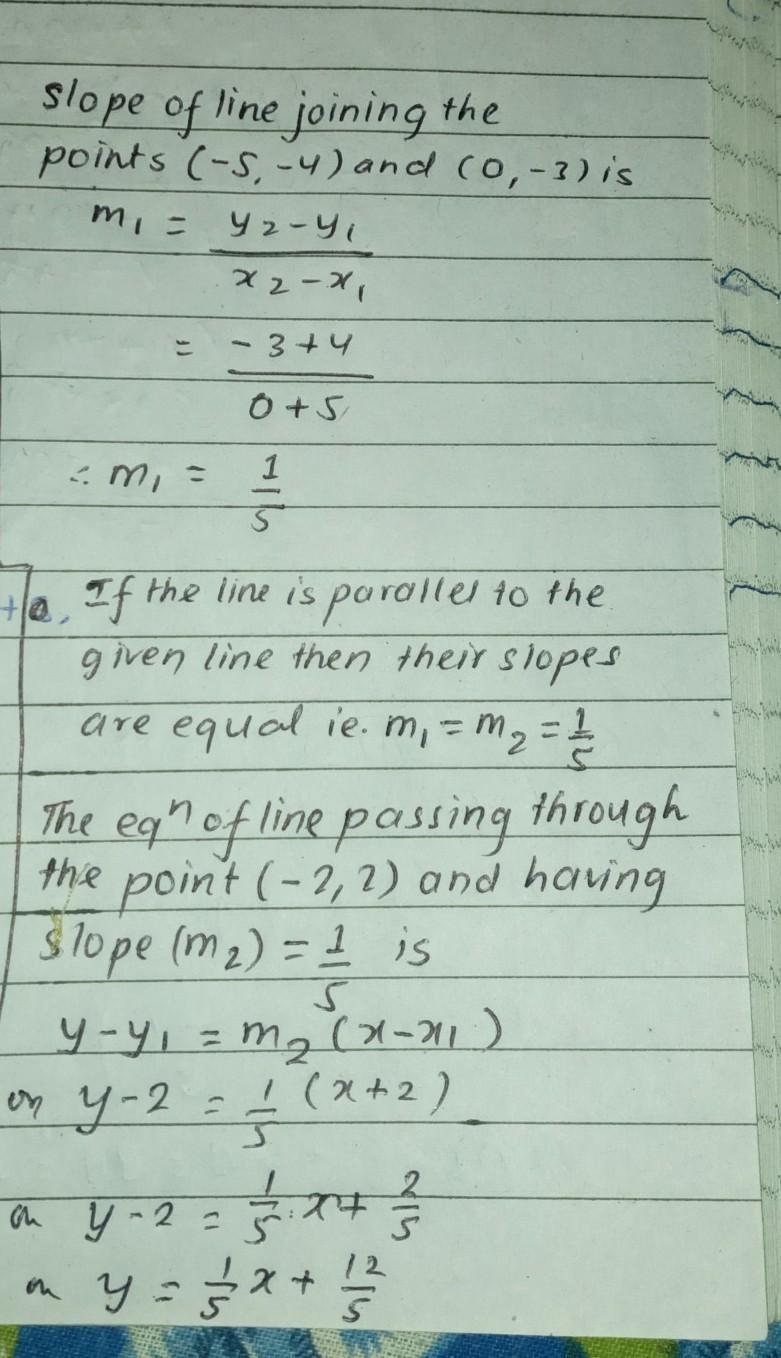 slope of line joining the
points (-5, -4) and (0, -3) is
m₁ = y₂-y₁
x₂-x₁
= -3+4
0+5
∴ m₁ = 1
5
If the line is parallel to the
given line then their slopes
are equal ie. m₁ = m₂ = 1/5
The eqⁿ of line passing through
the point (-2, 2) and having
slope (m₂) = 1/5 is
y-y₁ = m₂ (x-x₁)
or y-2 = 1/5 (x+2)
or y-2 = 1/5 x + 2/5
or y = 1/5 x + 12/5